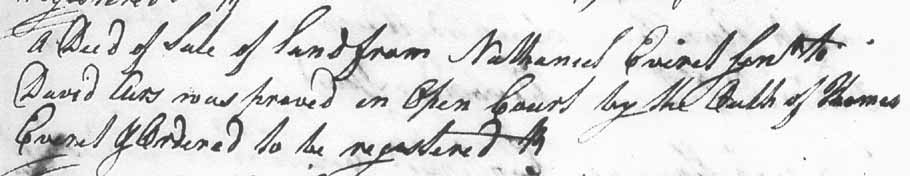 registered
A Deed of Sale of Land from Nathaniel Everet Senr to
David Airs was proved in Open Court by the Oath of Thomas
Everet & Ordered to be registered